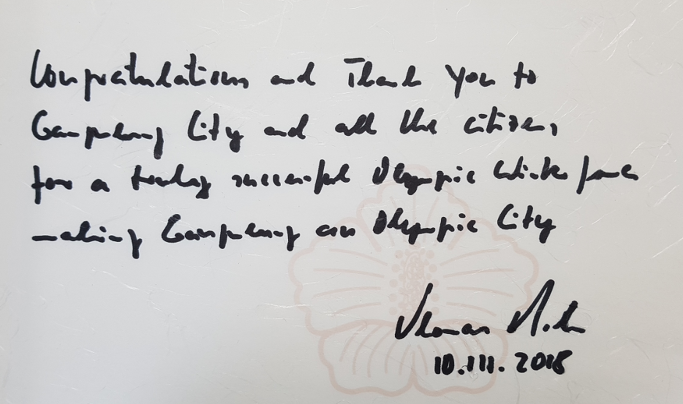 Congratulations and Thank You to
Gangneung City and all the citizens
for a truly successful Olympic Winter Games
making Gangneung an Olympic City
Thomas
10.III.2018